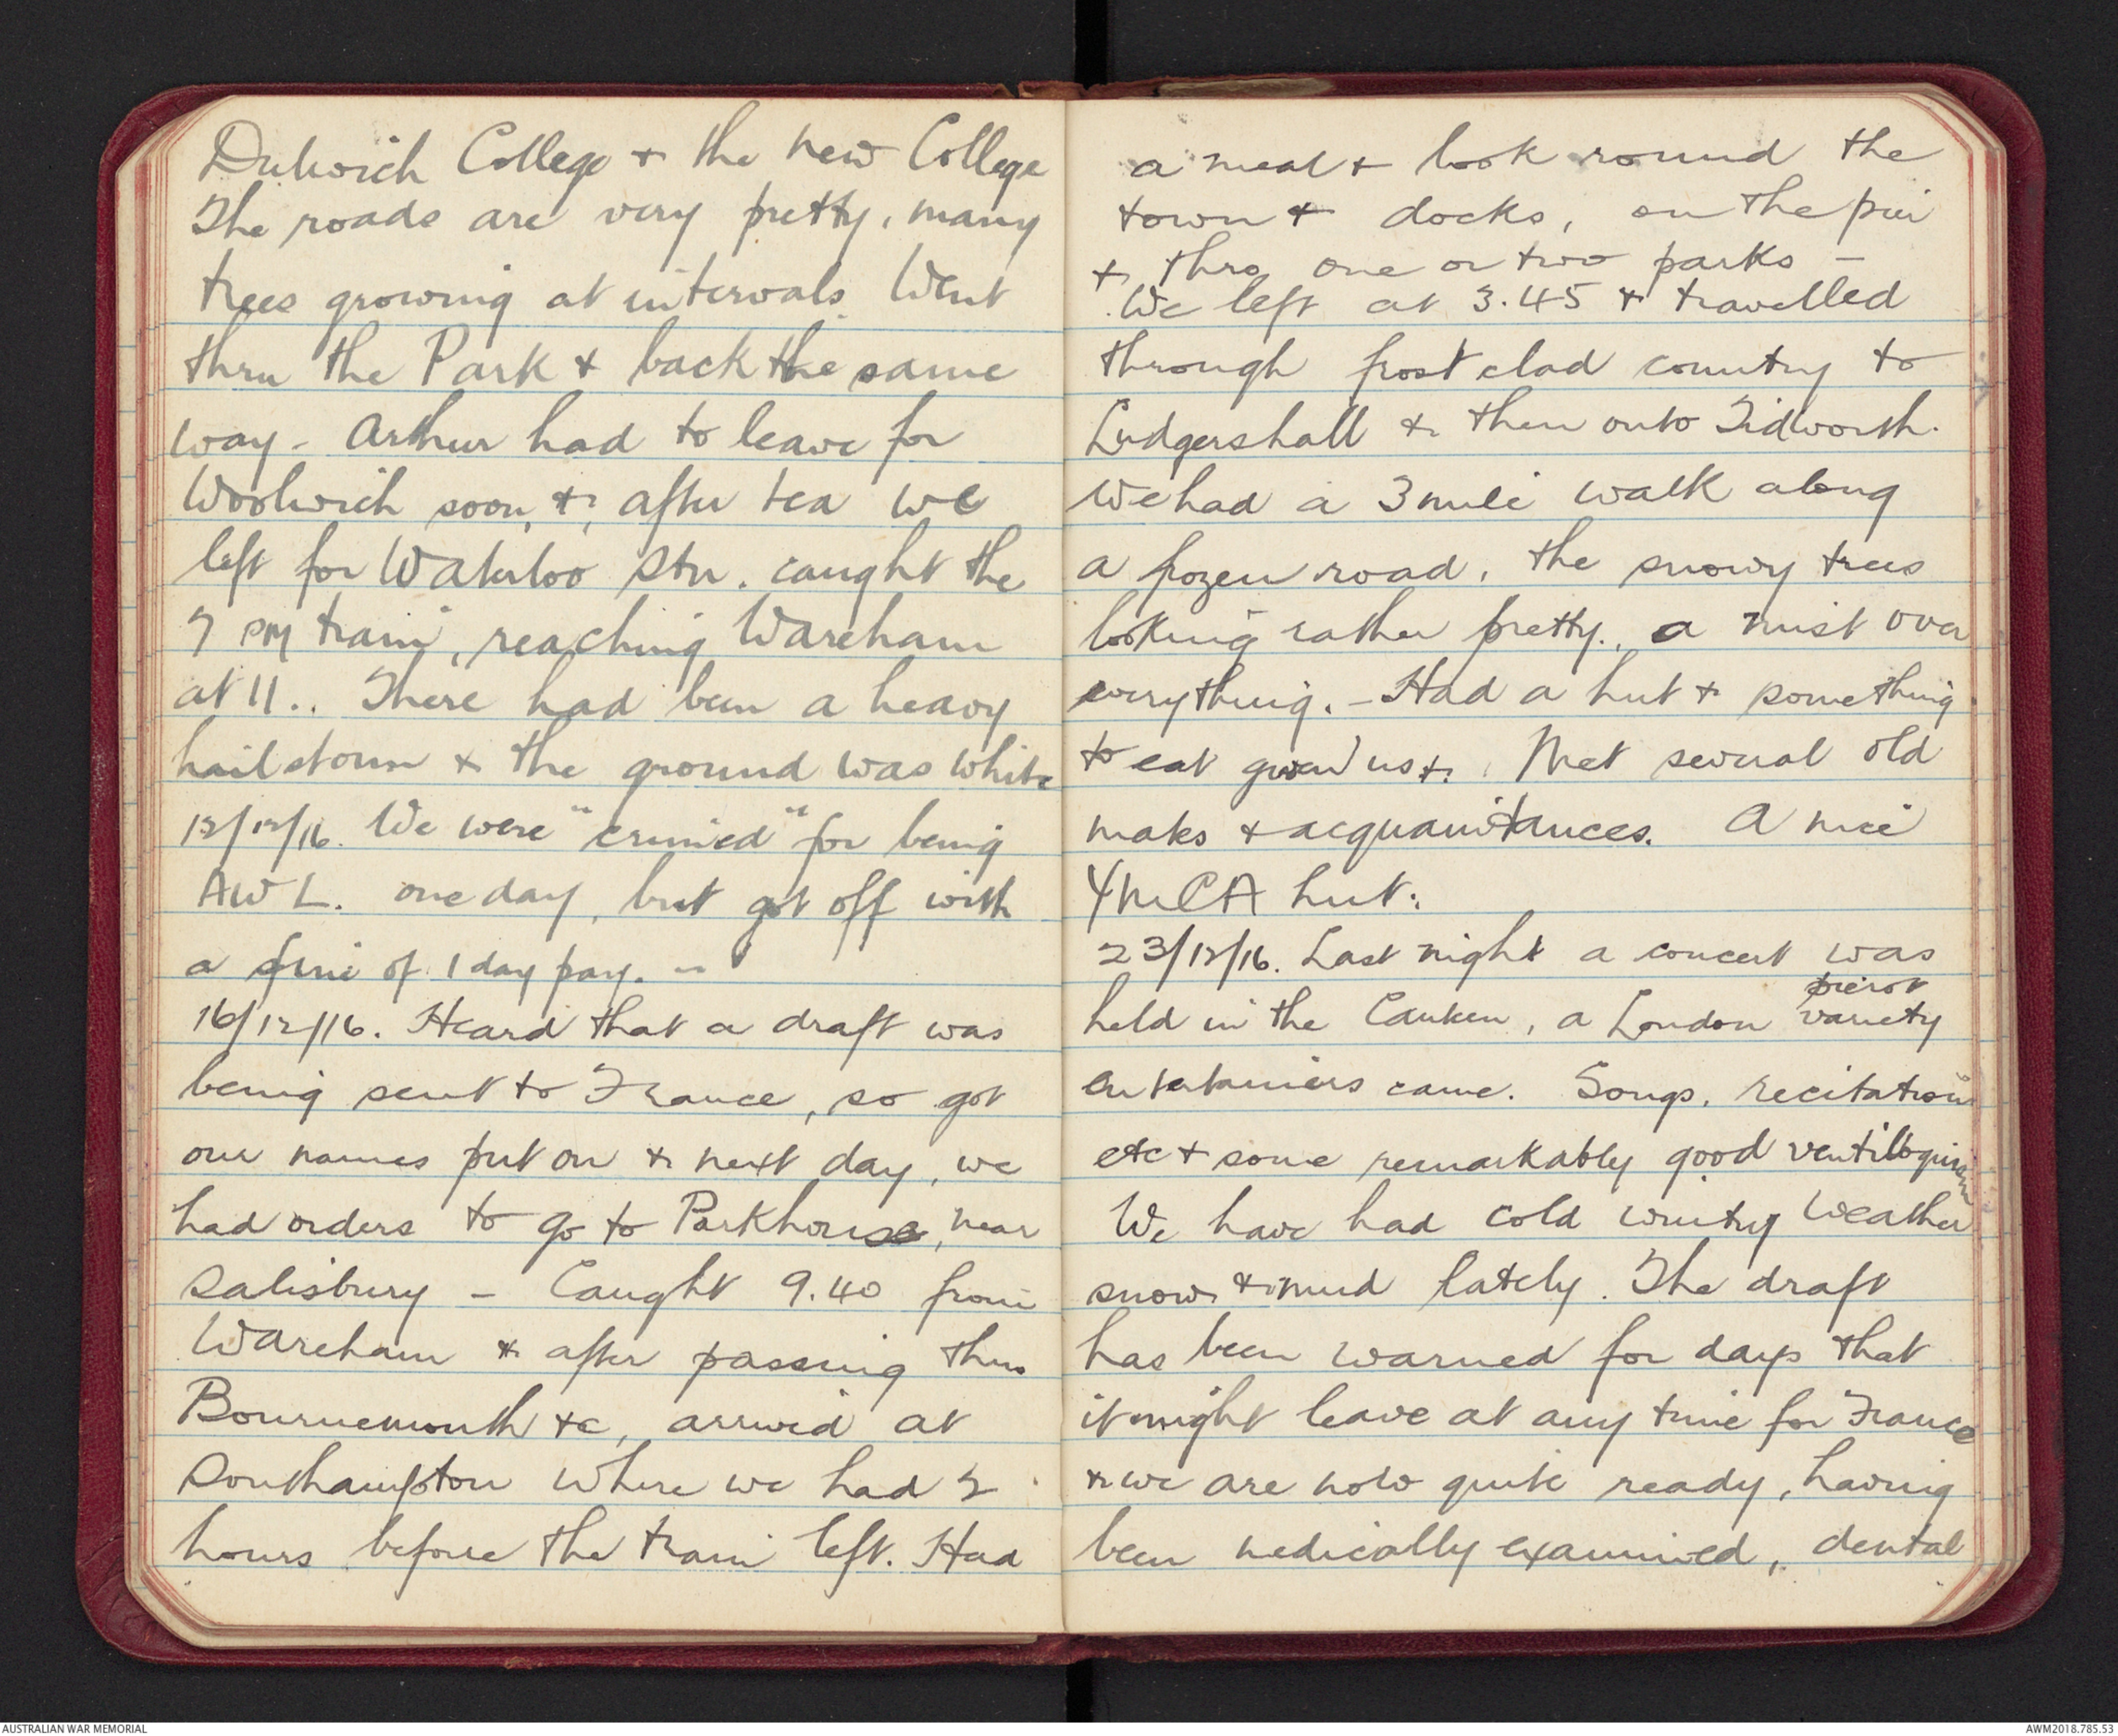 Dulwich College + the new College
The roads are very pretty, many
trees growing at intervals. Went
thru the Park + back the same
way - Arthur had to leave for
Woolwich soon, +, after tea we
left for Waterloo Stn. caught the
7 PM train, reaching Wareham
at 11.. There had been a heavy
hailstorm + the ground was white
12/12/16. We were "crimed" for being
AWL. one day, but got off with
a fine of 1 day pay. -
16/12/16. Heard that a draft was
being sent to France, so got
our names put on + next day, we
had orders to go to Parkhouse, near
Salisbury - Caught 9.40 from
Wareham + after passing thro
Bournemouth &c, arrived at
Southampton where we had 2
hours before the train left. Had
a meal + look round the
town + docks, on the pier
+ thro one or two parks -
We left at 3.45 + travelled
through frost clad country to
Ludgershall + then onto Tidworth.
We had a 3 mile walk along
a frozen road, the snowy trees
looking rather pretty., a mist over
everything. - Had a hut + something
to eat given us +. Met several old
mates + acquaintances. A nice
YMCA hut.
23/12/16. Last night a concert was
pierot
held in the Canteen, a London variety
entertainers came. Songs, recitations
etc + some remarkably good ventiloquism
We have had cold wintry weather
snow + mud lately. The draft
has been warned for days that
it might leave at any time for France
+ we are now quite ready, having
been medically examined, dental
AUSTRALIAN WAR MEMORIAL
AWM2018.785.53